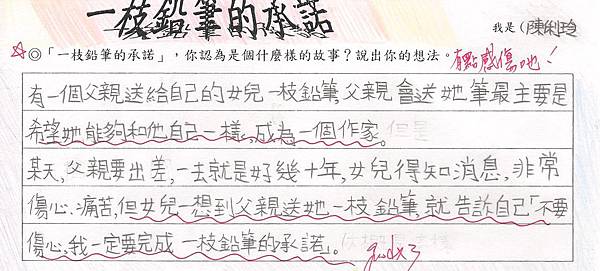 一枝鉛筆的承諾
我是(陳俐玲
☆◎「一枝鉛筆的承諾」，你認為是個什麼樣的故事？說出你的想法。有點感傷吔！
有一個父親送給自己的女兒一枝鉛筆，父親會送她筆最主要是
希望她能夠和他自己一樣，成為一個作家。但是
某天，父親要出差，一去就是好幾十年，女兒得知消息，非常
傷心、痛苦，但女兒一想到父親送她一枝鉛筆，就告訴自己「不要
傷心，我一定要完成一枝鉛筆的承諾」。